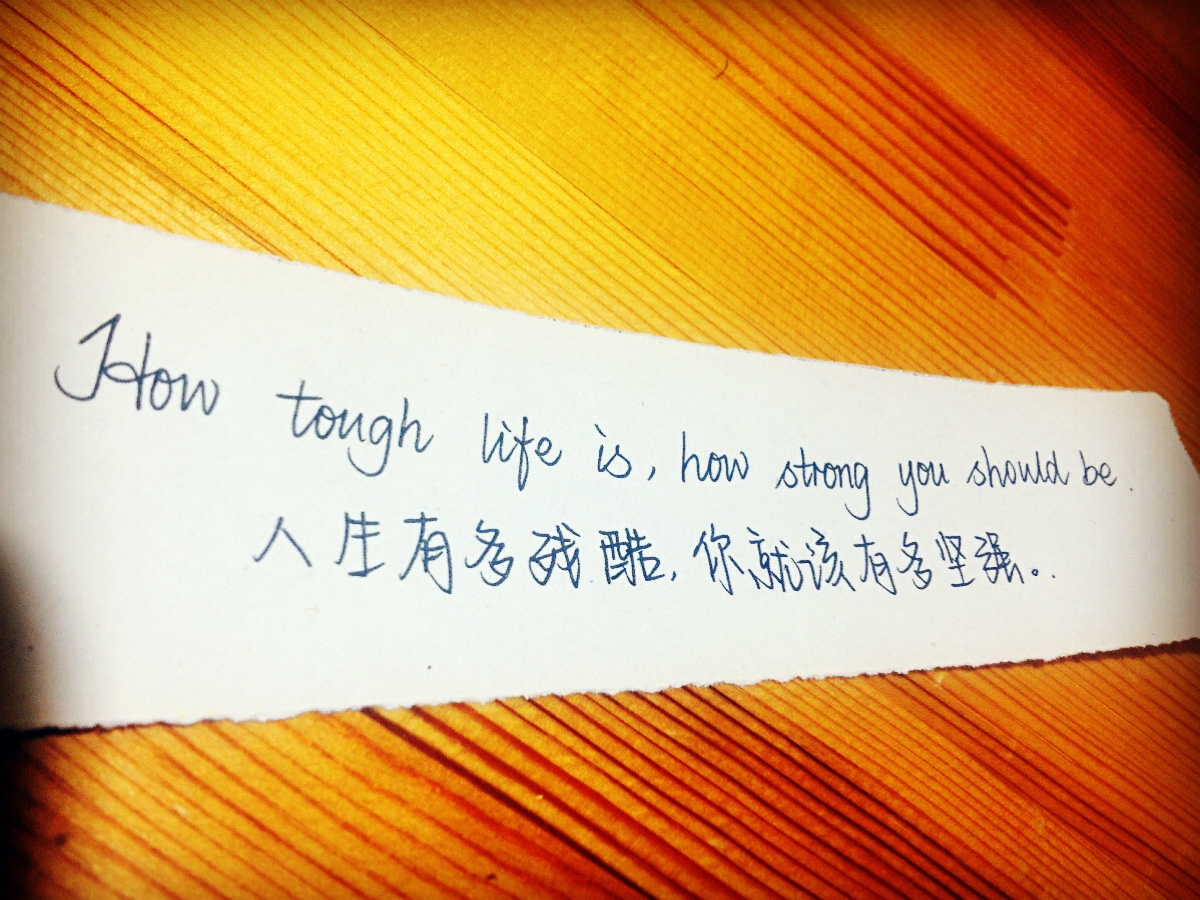 How tough life is, how strong you should be.
人生有多残酷,你就该有多坚强。